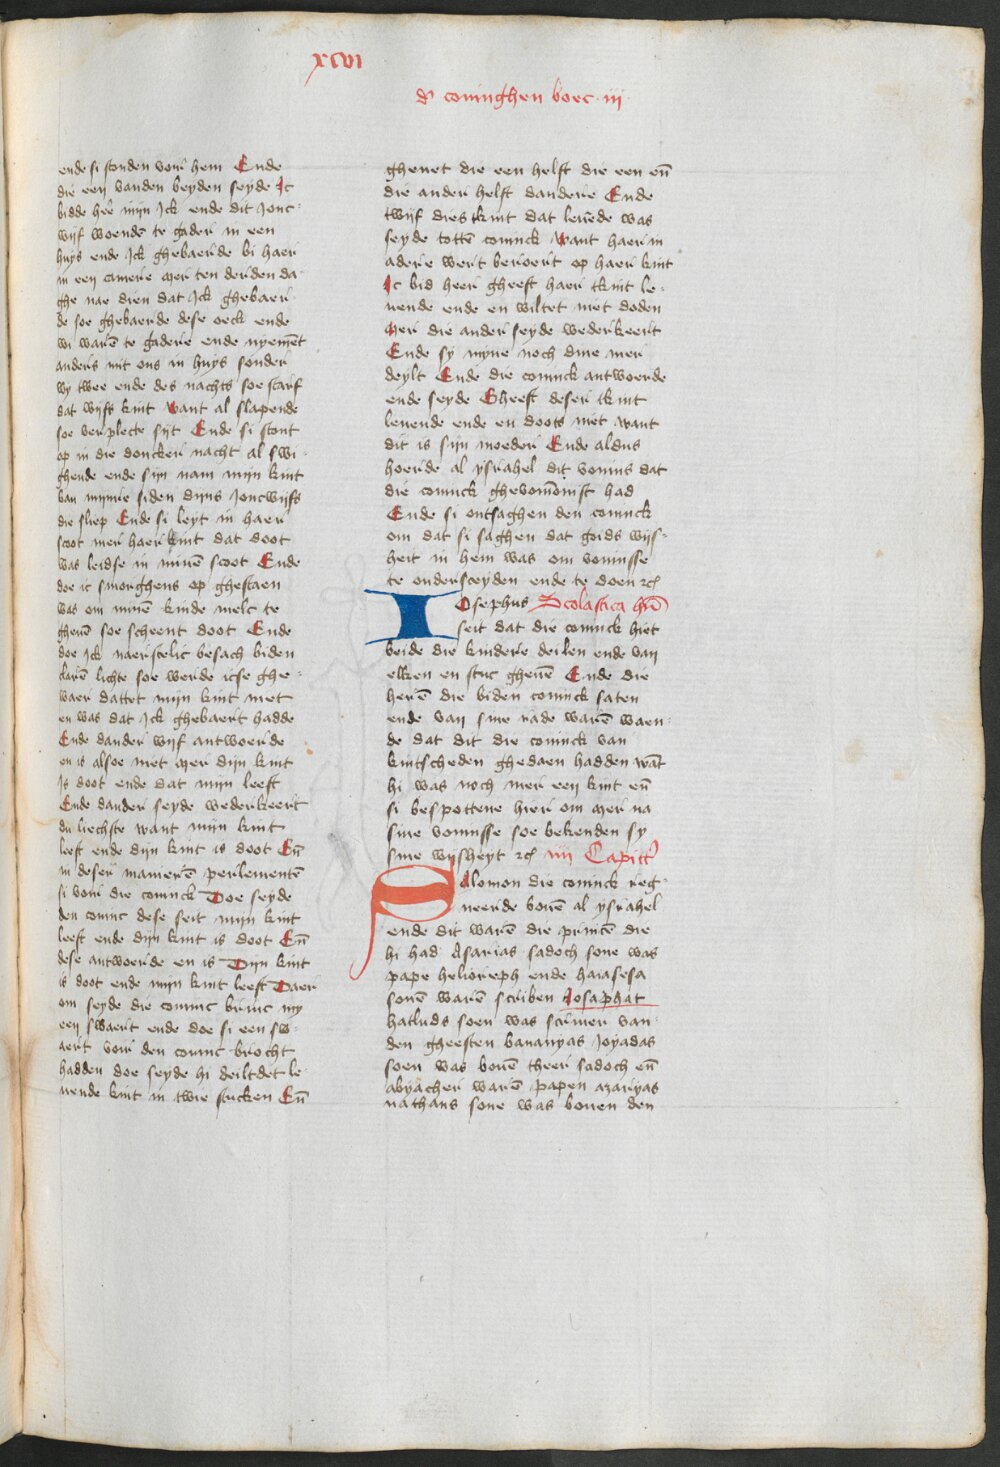 xcvi
d' coninghen boec · iij ·
ende si stonden voir hem Ende
die een vanden beyden seyde Ic
bidde heē mijn Ick ende dit Jonc-
wijf woenden te gader in een
huys ende Ick ghebaerde bi haer
in een camere Mer ten derden da
ghe nae dien dat Ick ghebaer
de soe ghebaerde dese oeck ende
wi warē te gadere ende nyemēt
anders mit ons in huys sonder
wy twee ende des nachts soe starf
dat wijfs kint Want al slapende
soe verplecte sijt Ende si stont
op in die doncker nacht al swi
ghende ende sijn nam mijn kint
van mijnre siden dijns Joncwijfs
die sliep Ende si leyt in haer
scoot mer haer kint dat doot
was leidse in minē scoot Ende
doe ic smorghens op ghestaen
was om minē kinde melc te
ghevē soe scheent doot Ende
doe Ick naerstelic besach biden
clarē lichte soe werde icse ghe-
waer dattet mijn kint niet
en was dat Ick ghebaert hadde
Ende dander wijf antwoerde
en is alsoe niet Mer dijn kint
Is doot ende dat mijn leeft
Ende dander seyde wederkeert
du liechste want mijn kint
leeft ende dijn kint is doot Eñ
in deser manierē perlementē
si voir die coninck Doe seyde
den coninc dese seit mijn kint
leeft ende dijn kint is doot Eñ
dese antwoerde en is Dijn kint
is doot ende mijn kint leeft Daer
om seyde die coninc brinc my
een swaert ende doe si een sw-
aert voir den coninc brocht
hadden doe seyde hi deiltdet le
nende kint in twie stucken Eñ
ghevet die een helft die een eñ
die ander helft dandere Ende
twijf dies tkint dat levēde was
seyde tottē coninck Want haer in
adere wert beroert op haer kint
Ic bid heer gheeft haer tkint le-
uende ende en wiltet niet doden
Mer die ander seyde wederkeert
Ende sy myne noch dine mer
deylt Ende die coninck antwoerde
ende seyde Gheeft deser tkint
leuende ende en doots niet want
dit is sijn moeder Ende aldus
hoerde al ysrahel dit vonnis dat
die coninck ghevonnist had
Ende si ontsaghen den coninck
om dat si saghen dat goids wijs-
heit in hem was om vonnisse
te onderscheyden ende te doen
Iosephus Scolastica
seit dat die coninck hiet
beide die kindere deilen ende van
elken en stuc ghevē Ende die
herē die biden coninck saten
ende van sine rade warē waen-
de dat dit die coninck van
kintscheden ghedaen hadden wāt
hi was noch mer een kint eñ
si bespottene hier om Mer na
sine vonnisse soe bekenden sy
sine wijsheyt iiij Capitt'
Salomon die coninck reg-
neerde bouē al ysrahel
ende dit warē die princē die
hi had Asarias sadoch sone was
pape helioreph ende haiasesa
sonē warē scriben Josaphat
hatluds soen was scriuer van
den gheesten bananyas Joyadas
soen was bouē theer sadoch eñ
abyacher warē papen azaryas
nathans sone was bouen den